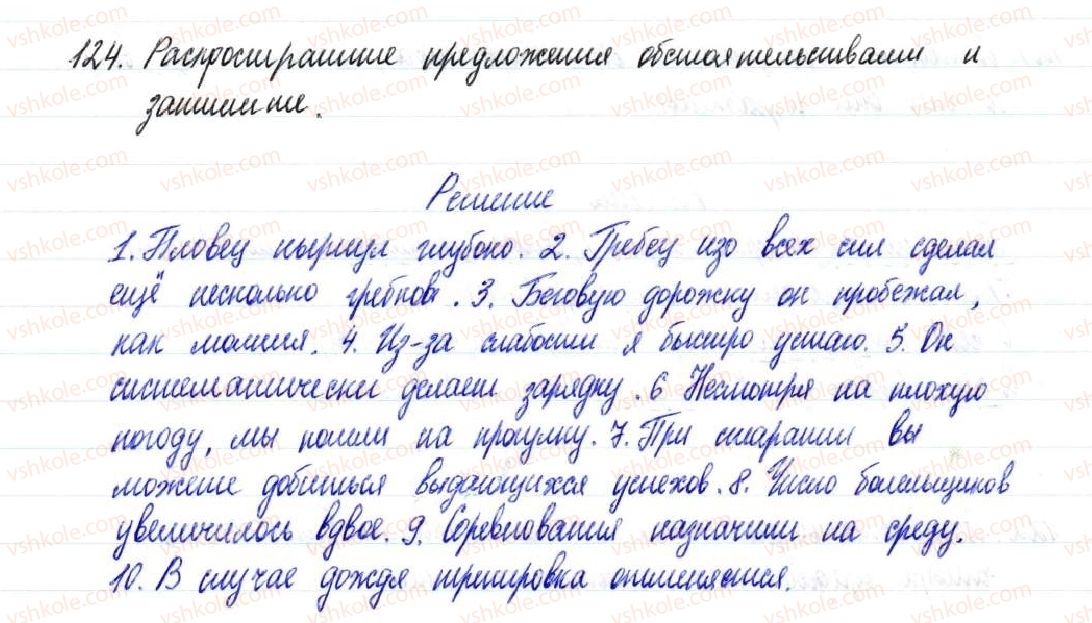 124. Распространите предложения обстоятельствами и
запишите.
Решение
1. Пловец нырнул глубоко. 2. Гребец изо всех сил сделал
ещё несколько гребков. 3. Беговую дорожку он пробежал,
как молния. 4. Из-за слабости я быстро устаю. 5. Он
систематически делает зарядку. 6 Несмотря на плохую
погоду, мы пошли на прогулку. 7. При старании вы
можете добиться выдающихся успехов. 8. Число болельщиков
увеличилось вдвое. 9. Соревнования назначили на среду.
10. В случае дождя тренировка отменяется.